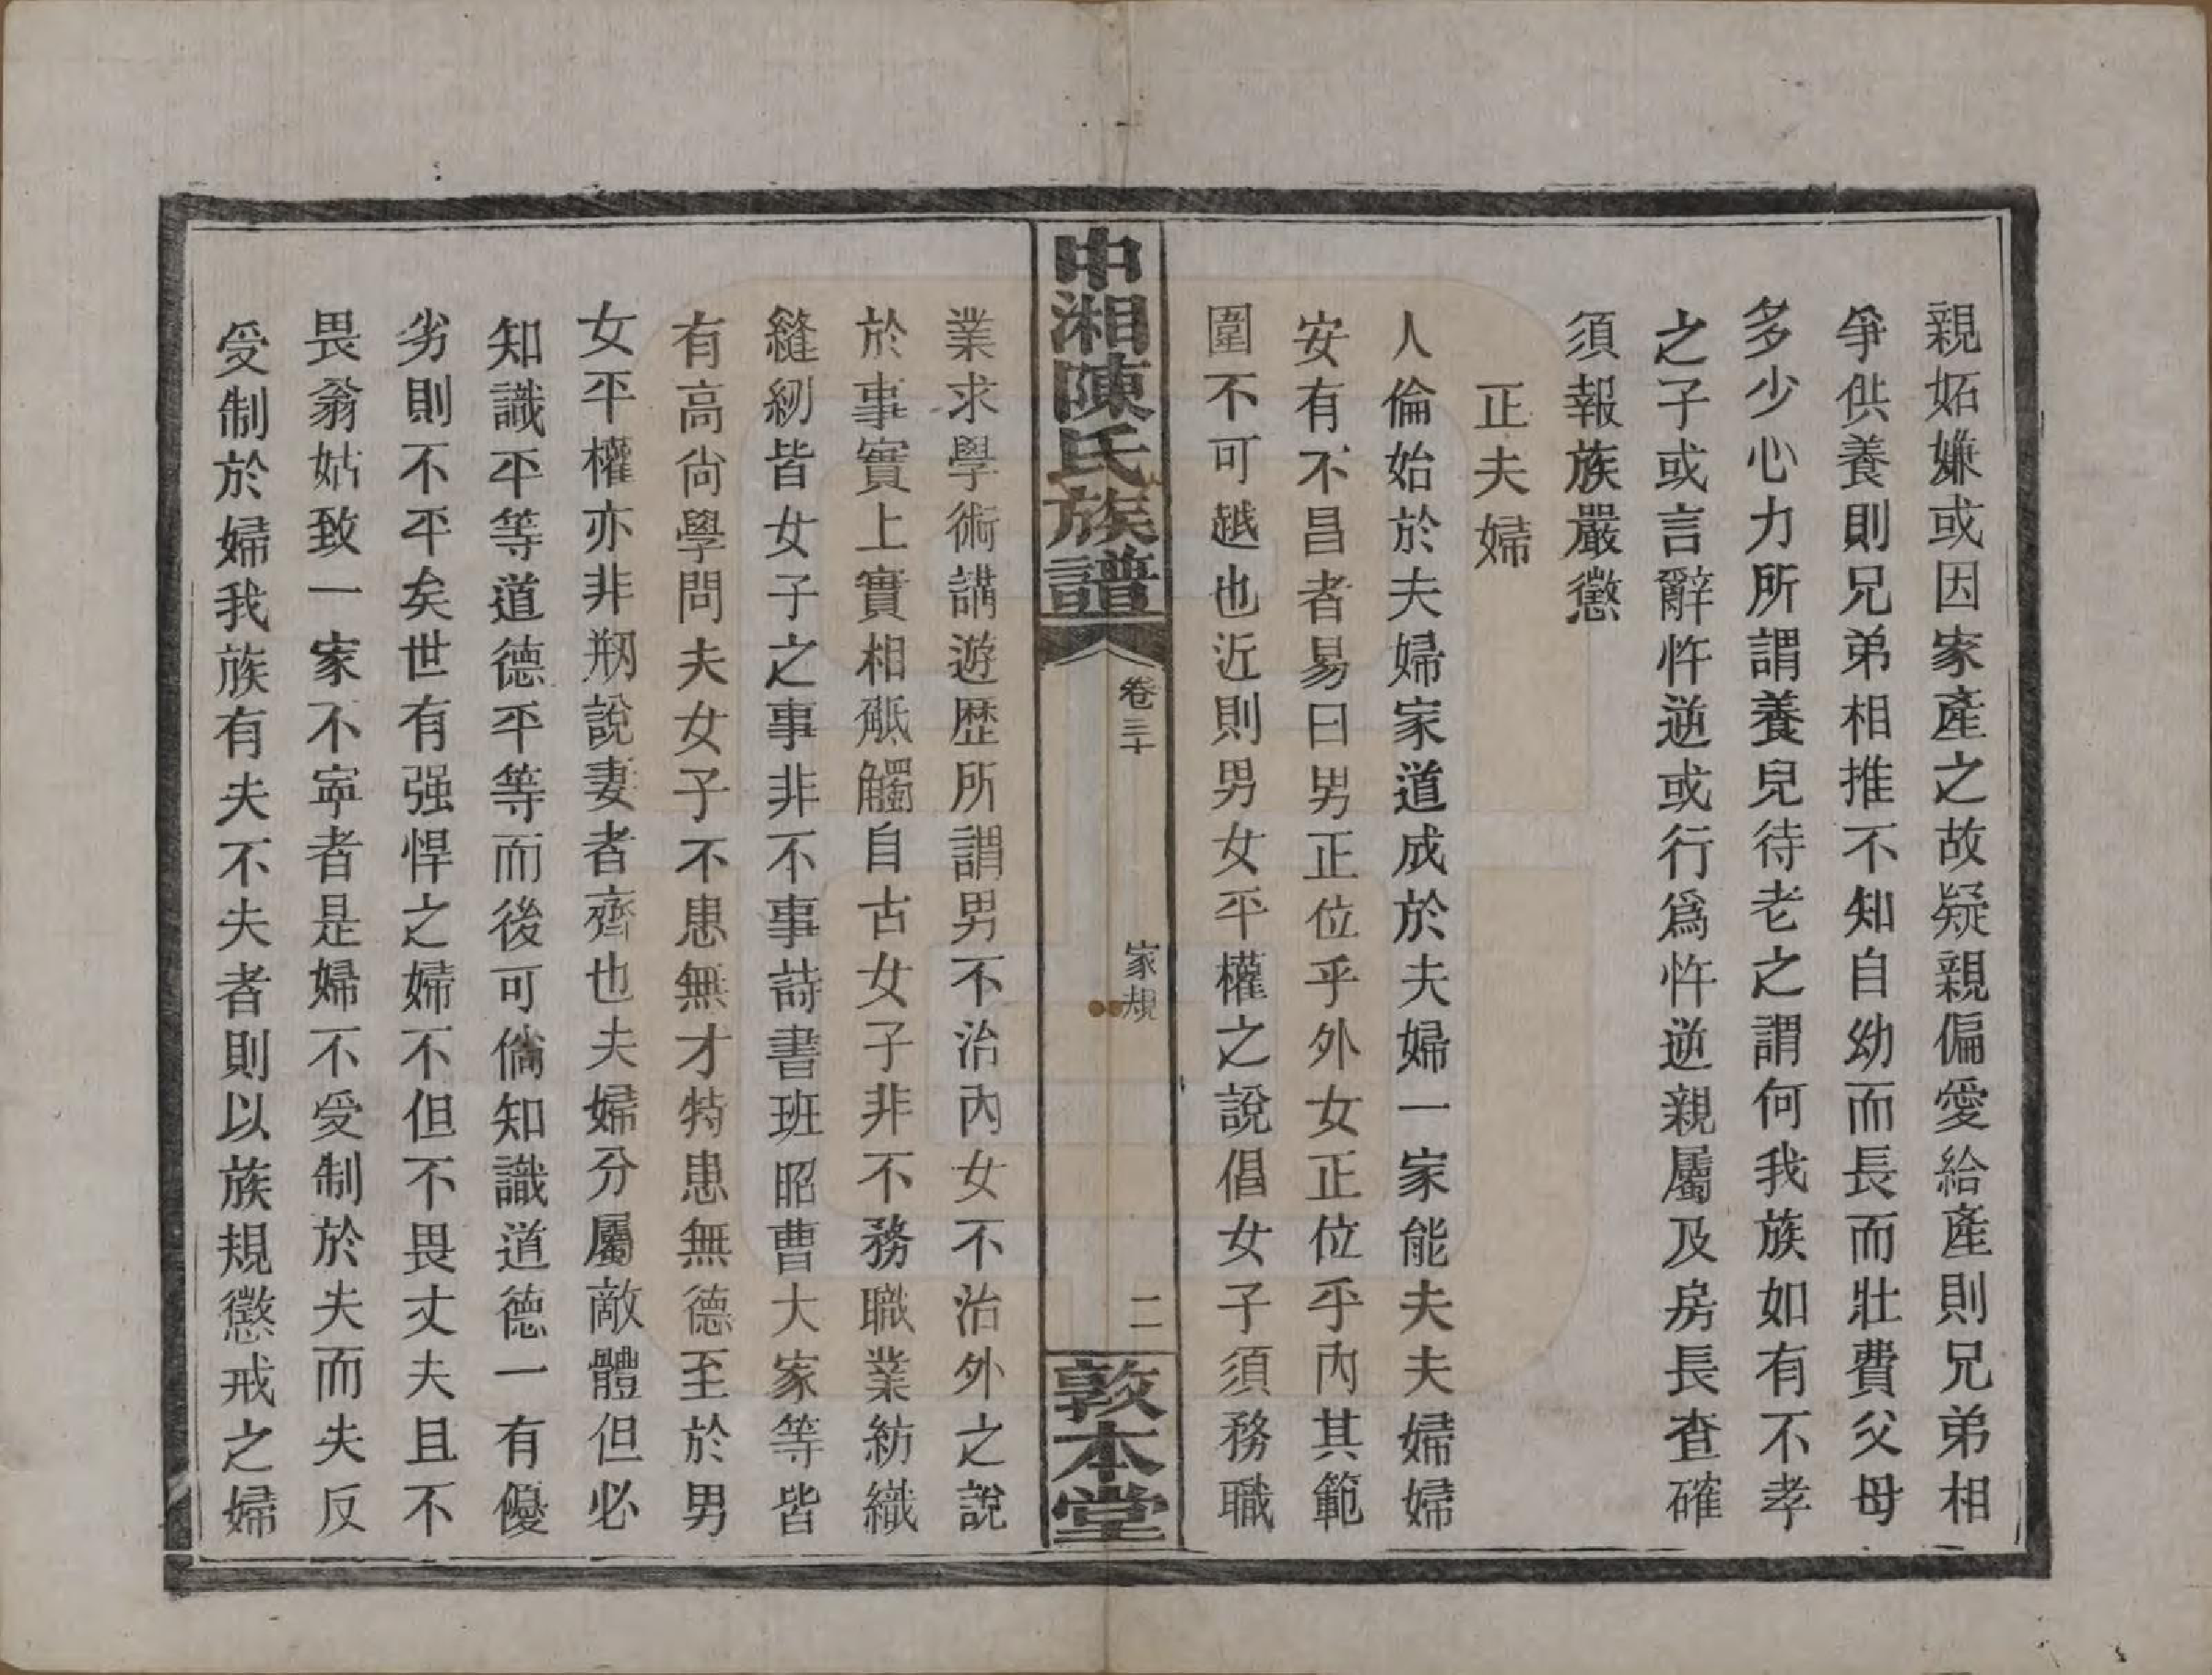 親妬嫌或因家產之故疑親偏愛給產則兄弟相
爭供養則兄弟相推不知自幼而長而壯費父母
多少心力所謂養兒待老之謂何我族如有不孝
之子或言辭忤逆或行爲忤逆親屬及房長查確
須報族嚴懲
正夫婦
人倫始於夫婦家道成於夫婦一家能夫夫婦婦
安有不昌者易曰男正位乎外女正位乎內其範
圍不可越也近則男女平權之說倡女子須務職
中湘陳氏族譜
卷三十
家規
二
敦本堂
業求學術講遊歷所謂男不治內女不治外之說
於事實上實相觝觸自古女子非不務職業紡織
縫紉皆女子之事非不事詩書班昭曹大家等皆
有高尙學問夫女子不患無才特患無德至於男
女平權亦非刱說妻者齊也夫婦分屬敵體但必
知識平等道德平等而後可倘知識道德一有優
劣則不平矣世有强悍之婦不但不畏丈夫且不
畏翁姑致一家不寧者是婦不受制於夫而夫反
受制於婦我族有夫不夫者則以族規懲戒之婦